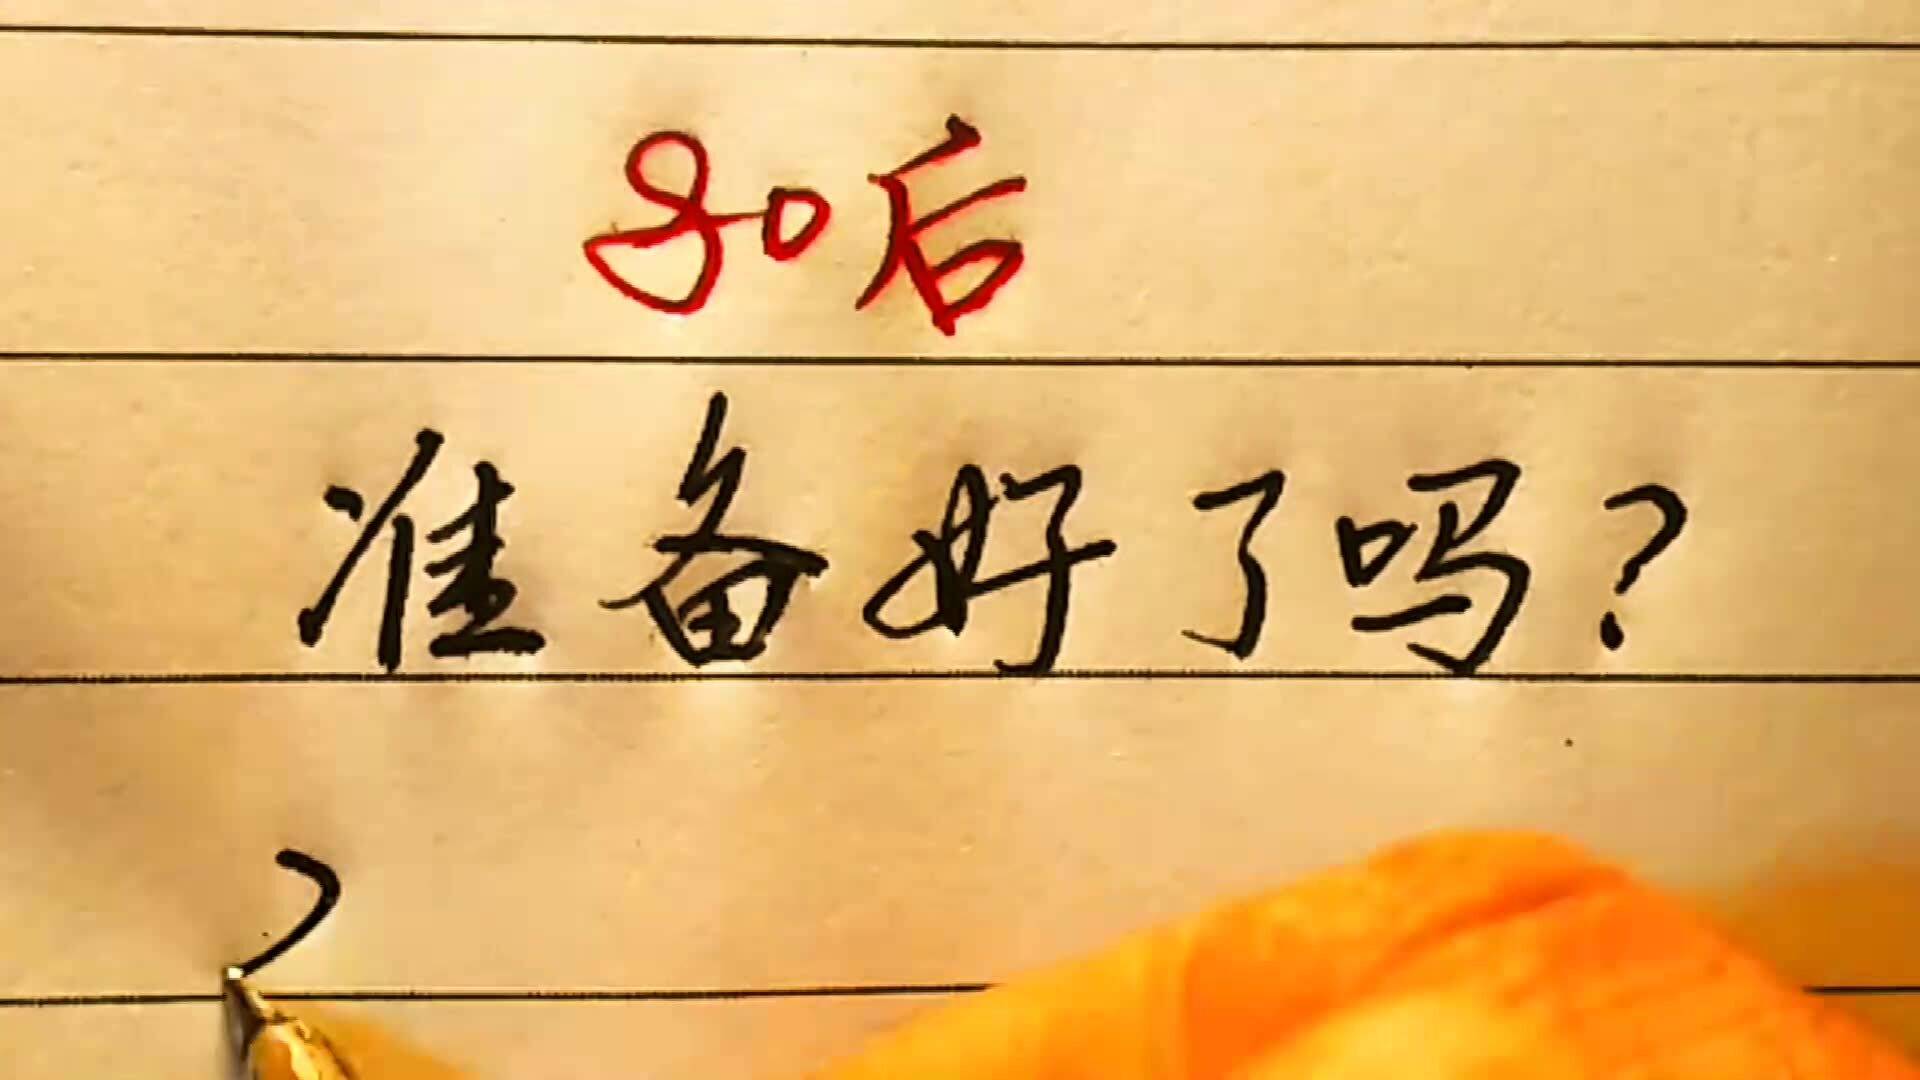 80后
准备好了吗?